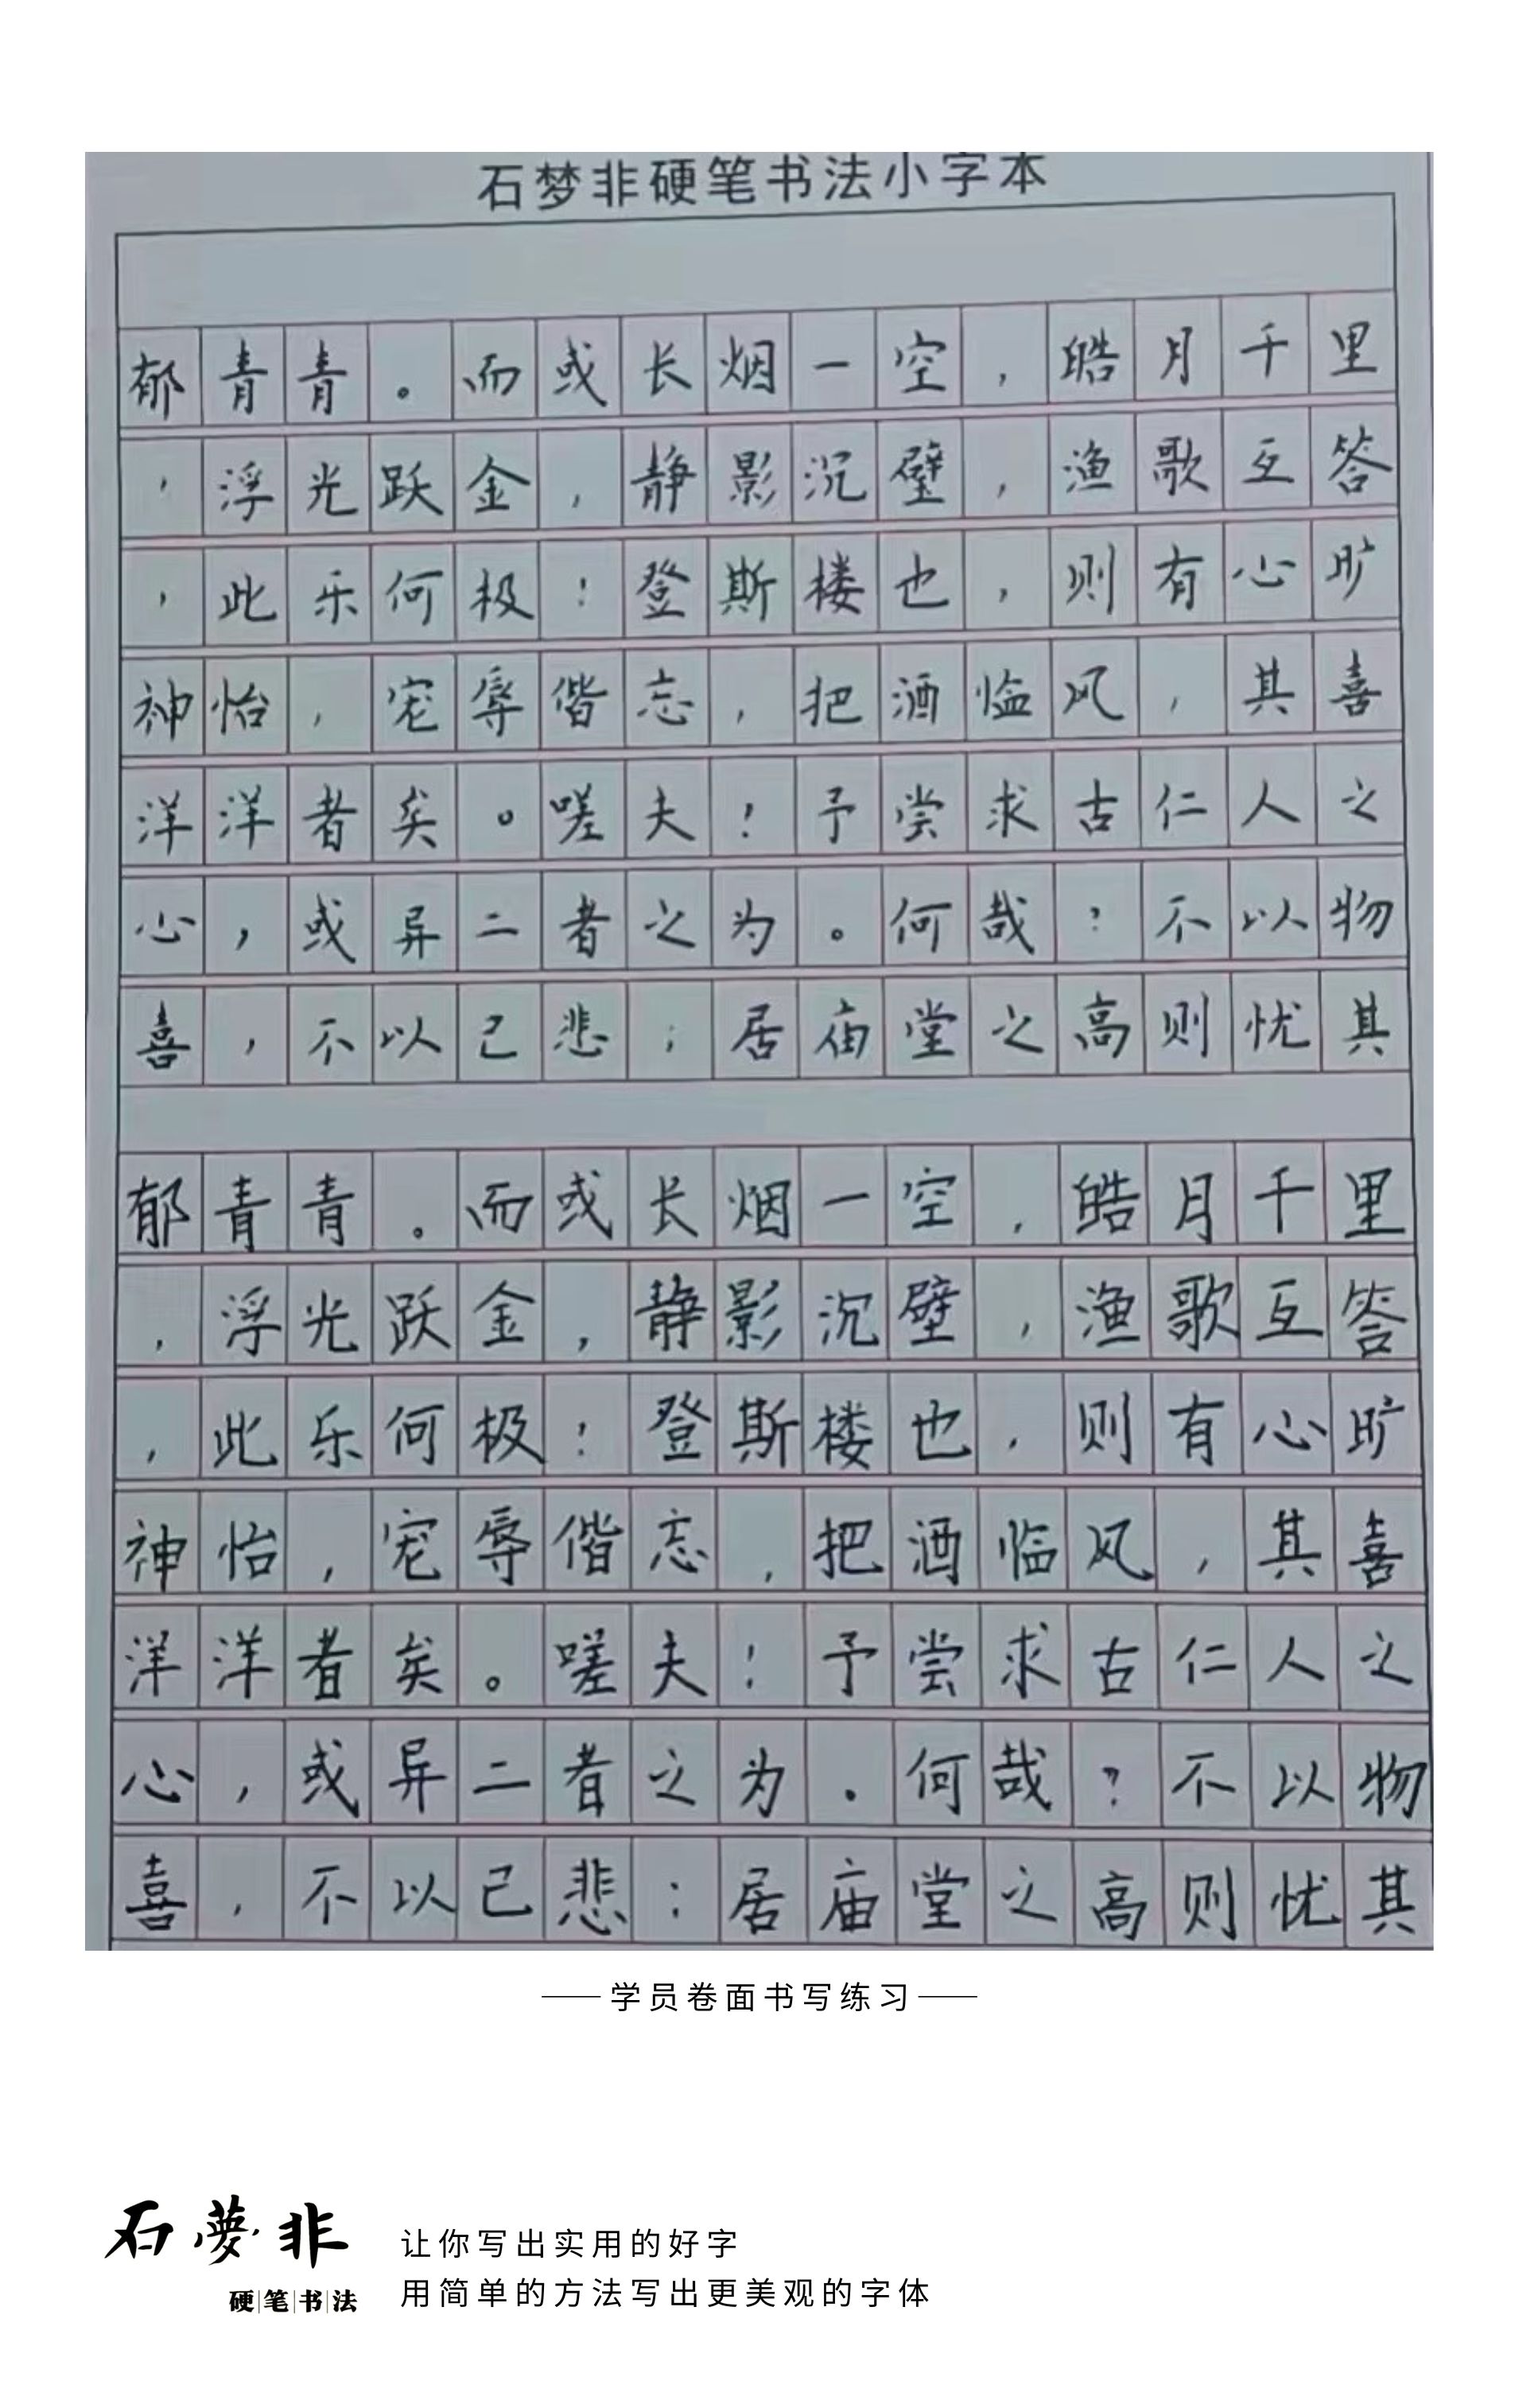 石梦非硬笔书法小字本
郁青青。而或长烟一空，皓月千里
，浮光跃金，静影沉璧，渔歌互答
，此乐何极！登斯楼也，则有心旷
神怡，宠辱偕忘，把酒临风，其喜
洋洋者矣。嗟夫！予尝求古仁人之
心，或异二者之为。何哉？不以物
喜，不以己悲；居庙堂之高则忧其
郁青青。而或长烟一空，皓月千里
，浮光跃金，静影沉璧，渔歌互答
，此乐何极！登斯楼也，则有心旷
神怡，宠辱偕忘，把酒临风，其喜
洋洋者矣。嗟夫！予尝求古仁人之
心，或异二者之为。何哉？不以物
喜，不以己悲；居庙堂之高则忧其
学员卷面书写练习
石夢非
硬笔书法
让你写出实用的好字
用简单的方法写出更美观的字体